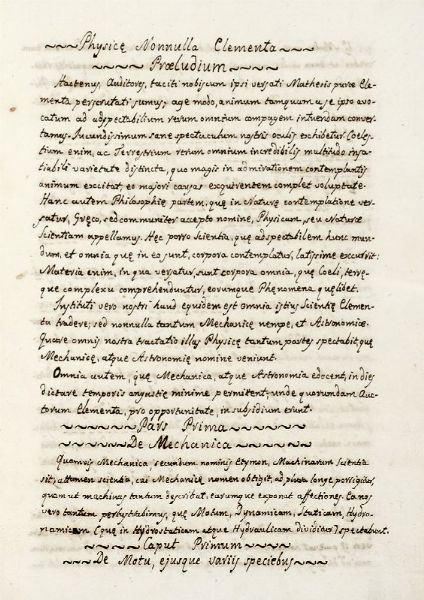 Physicę Nonnulla Elementa
Præludium
Hactenus, Auditores, taciti nobiscum ipsi versati Mathesis puræ Ele-
menta perscrutati sumus; age modo, animum tanquam a se ipso avo-
catum ad adspectabilium rerum omnium compagem intuendam conver-
tamus. Jucundissimum sane spectaculum nostris oculis exhibetur. Coeles-
tium enim, ac Terrestrium rerum omnium incredibilis multitudo insa-
tiabili varietate distincta, quo magis in admirationem contemplantis
animum excitat, eo majori causas exquirentem complet voluptate.
Hanc autem Philosophiæ partem, quę in Naturę contemplatione ver-
satur, Gręco, sed communiter accepto nomine, Physicam, seu Naturæ
Scientiam appellamus. Hęc porro Scientia, quę adspectabilem hunc mun-
dum, et omnia quę in eo sunt, corpora contemplatur, latissime excurrit:
Materia enim, in qua versatur, sunt corpora omnia, quę Coeli, terrę-
que complexu comprehenduntur, eorumque Phęnomena quęlibet.
Instituti vero nostri haud equidem est omnia istius Scientię Elemen-
ta tradere, sed nonnulla tantum Mechanicę nempe, et Astronomiæ.
Quare omnis nostra tractatio illas Physicę tantum partes spectabit, quę
Mechanicę, atque Astronomię nomine veniunt.
Omnia autem, quę Mechanica, atque Astronomia edocent, in dies
dictare temporis angustię minime permittent; unde quorundam Auc-
torum Elementa, pro opportunitate, in subsidium erunt.
Pars Prima
De Mechanica
Quamvis Mechanica secundum nominis etymon, Machinarum Scientia
sit, attamen scientia, cui Mechanicę nomen obtigit, ad plura longe porrigitur,
quam ut machinas tantum describat, earumque exponat affectiones. Ea nos
vero tantum perlustrabimus, quę Motum, Dynamicam, Staticam, Hydro-
namicam (quę in Hydrostaticam atque Hydraulicam dividitur) spectabunt.
Caput Primum
De Motu, ejusque variis speciebus